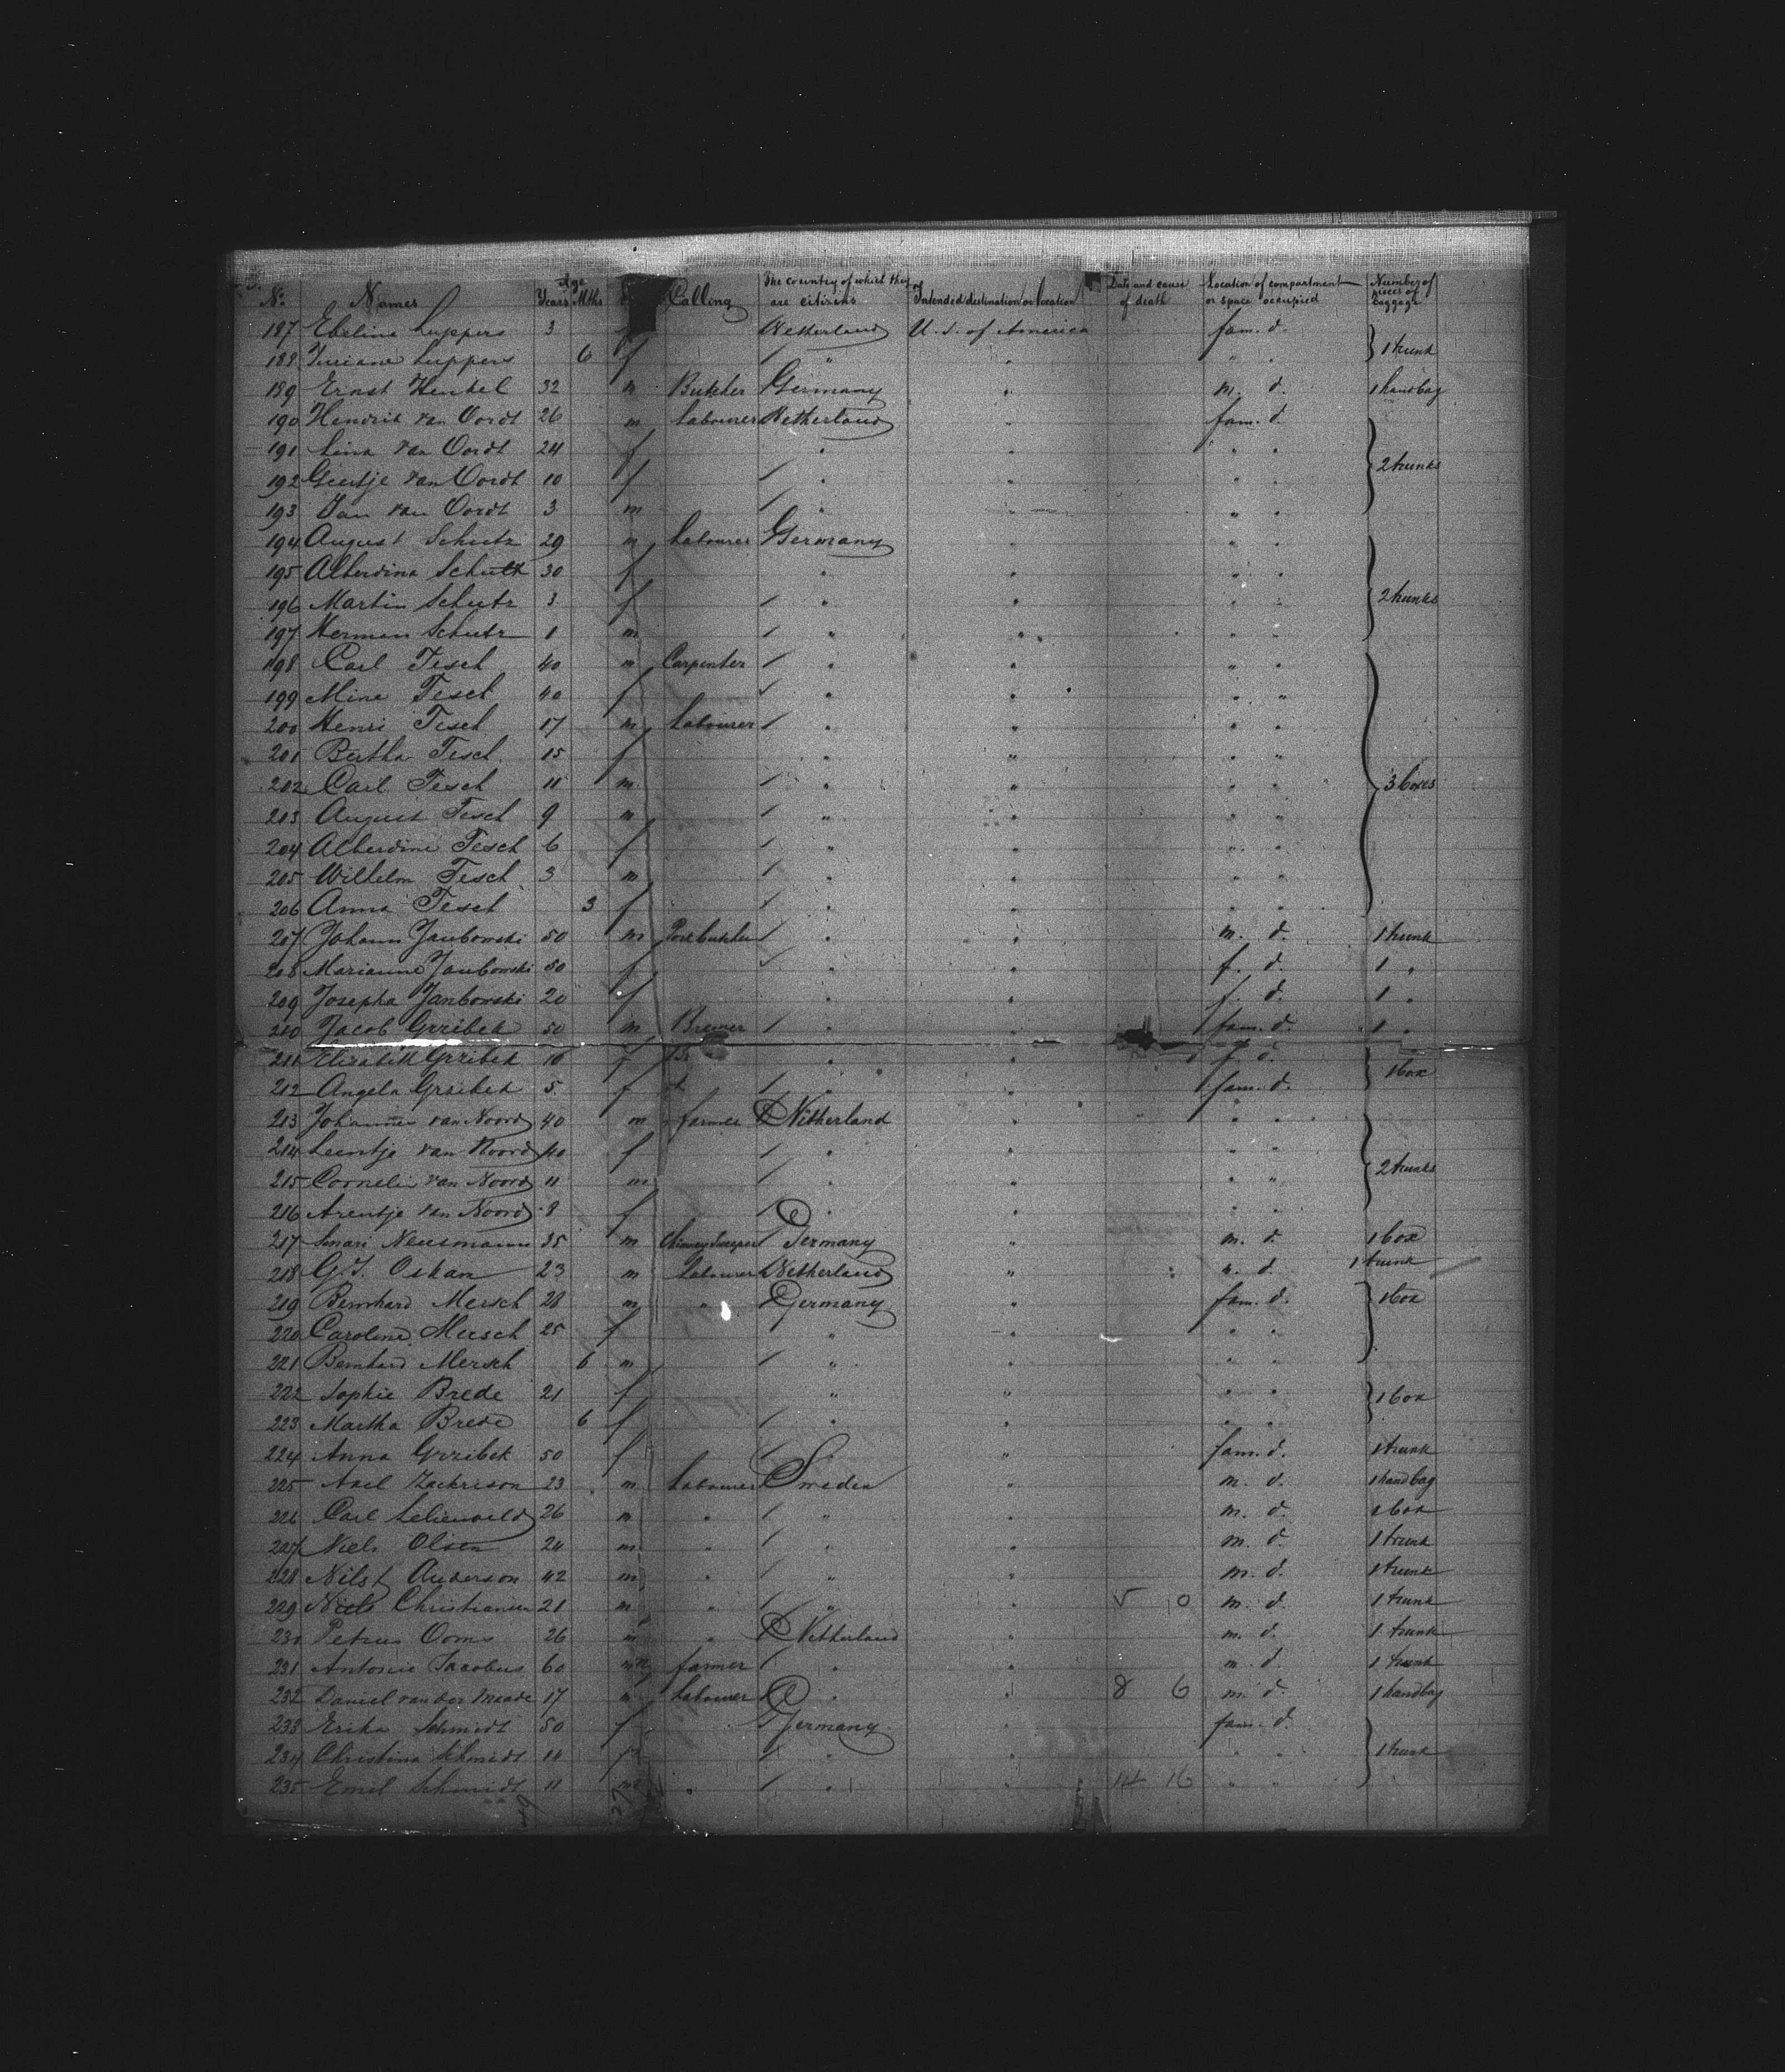 No. Names Age Years Mths Calling The country of which they are citizens Intended destination or location Date and cause of death Location of compartment or space occupied Number of pieces of luggage
187 Ebeline Luppers 3 f Netherland U. S. of America fam. d.
188 Luppers 6 f " " " " 1 trunk
189 Ernst Henkel 32 m Butcher Germany " m. d. 1 handbag
190 Hendrik van Oordt 26 m Labourer Netherland " fam. d.
191 Lina van Oordt 24 f " " " "
192 Geertje van Oordt 10 f " " " " 2 trunks
193 Jan van Oordt 3 m " " " "
194 August Schutz 29 m Labourer Germany " " "
195 Alberdina Schutz 30 f " " " "
196 Martin Schutz 3 f " " " " 2 trunks
197 Herman Schutz 1 m " " " "
198 Carl Tesch 40 m Carpenter " " " "
199 Mine Tesch 40 f " " " "
200 Henri Tesch 17 m Labourer " " " "
201 Bertha Tesch 15 f " " " "
202 Carl Tesch 11 m " " " " 3 boxes
203 August Tesch 9 m " " " "
204 Alberdine Tesch 6 f " " " "
205 Wilhelm Tesch 3 m " " " "
206 Anna Tesch 3 f " " " "
207 Johann Janbowski 50 m " " m. d. 1 trunk
208 Marianne Janbowski 50 f " " f. d. 1 "
209 Josepha Janbowski 20 f " " f. d. 1 "
210 Jacob Grzibek 50 m Brewer " " fam. d. 1 "
211 Elisabeth Grzibek 16 f " f. d.
212 Angela Grzibek 5 f " " fam. d. 1 box
213 Johannes van Noord 40 m farmer Netherland " " "
214 Leentje van Noord 40 f " " " "
215 Cornelis van Noord 11 m " " " " 2 trunks
216 Arentje van Noord 8 f " " " "
217 Neusmann 35 m Chimney Sweeper Germany " m. d. 1 box
218 G. J. Oskam 23 m Labourer Netherland " m. d. 1 trunk
219 Bernhard Mersch 28 m " Germany " fam. d. 1 box
220 Caroline Mersch 25 f " " " "
221 Bernhard Mersch 6 m " " " "
222 Sophie Brede 21 f " " " " 1 box
223 Martha Brede 6 f " " " "
224 Anna Grzibek 50 f " " fam. d. 1 trunk
225 Axel Zackrison 23 m Labourer Sweden " m. d. 1 handbag
226 Carl 26 m " " " m. d. 1 box
227 Niels Olsen 24 m " " " m. d. 1 trunk
228 Anderson 42 m " " " m. d. 1 trunk
229 Niels Christiansen 21 m " " " 5 0 m. d. 1 trunk
230 Petrus Ooms 26 m " Netherland " m. d. 1 trunk
231 Antonie Jacobus 60 m farmer " " m. d. 1 trunk
232 Daniel van der Maade 17 m Labourer " " 8 6 m. d. 1 handbag
233 Erika Schmidt 50 f Germany " fam. d.
234 Christina Schmidt 14 f " " " " 1 trunk
235 Emil Schmidt 11 m " " " 14 16 " "